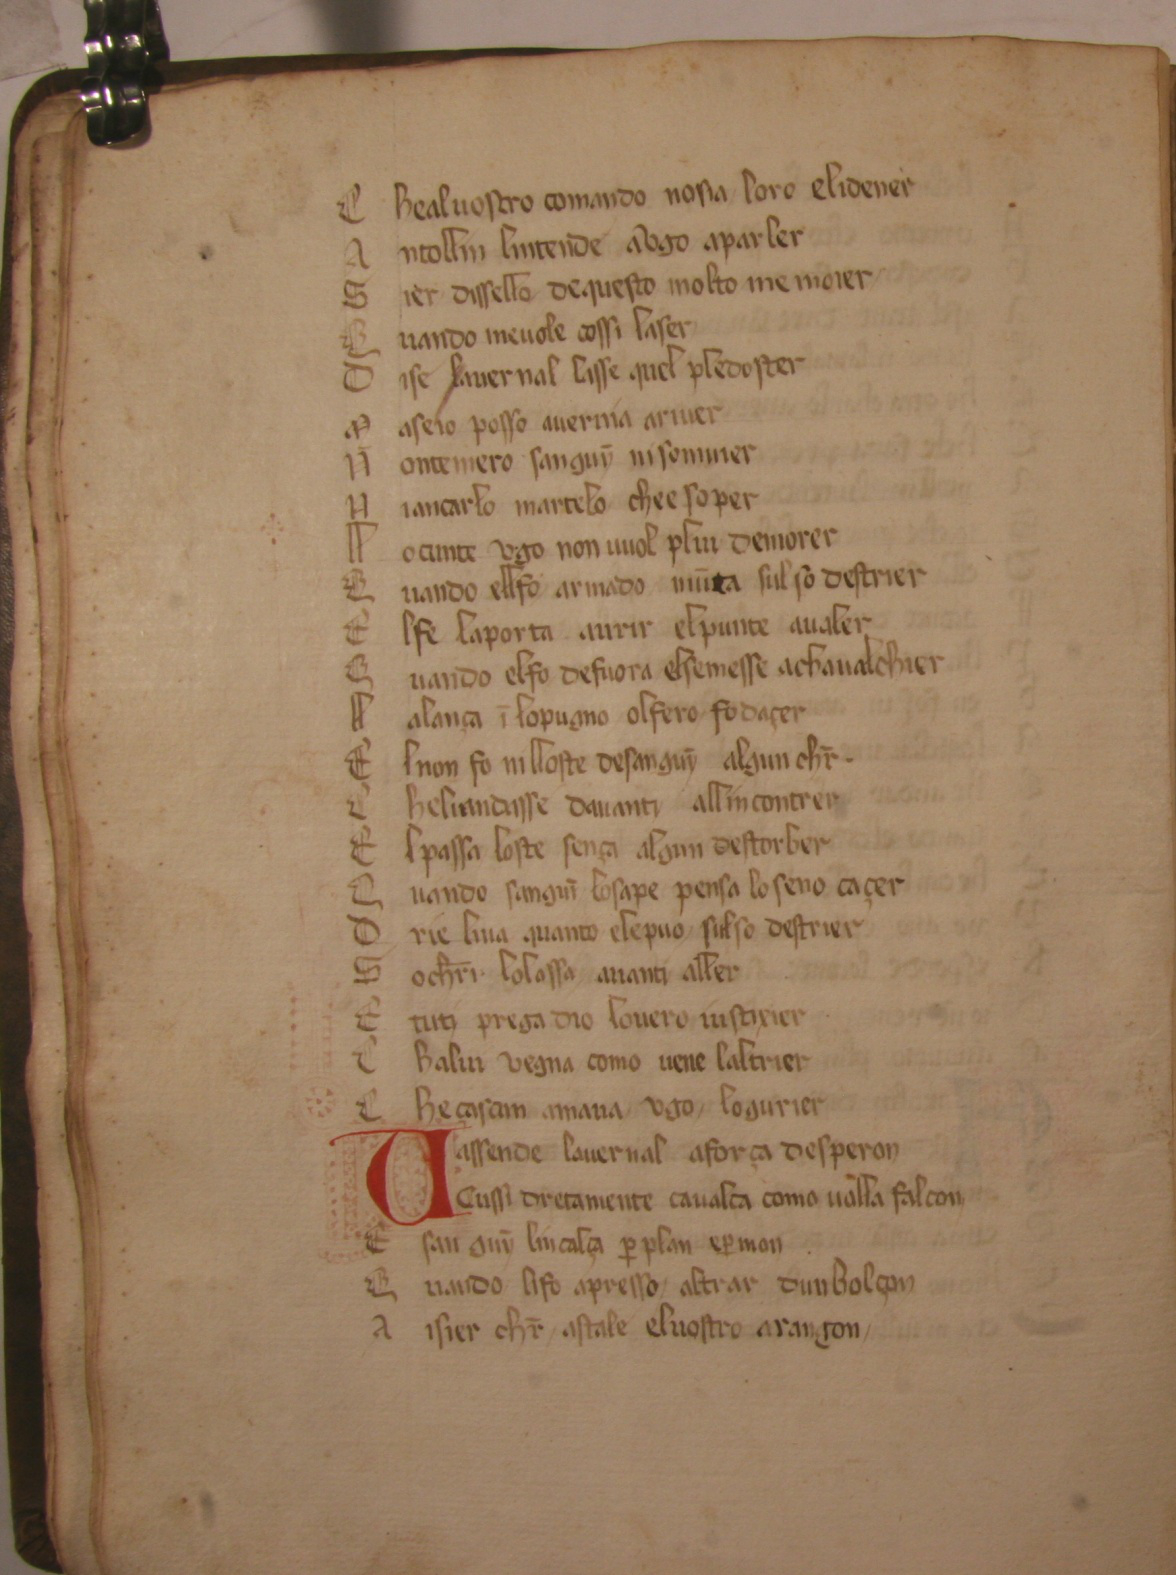 C healuostro comando nosia loro elidener
A ntollin lintende aVgo aparler
S ier dissello dequesto molto me moier
Q uando meuole cossi laser
D ise lauernal lasse quel pledoster
M aseio posso auermia armer
N ontemero sanguī nisomnier
N iancarlo martelo cheesoper
L ocunte vgo non uuol plui demorer
Q uando elfo armado mūta sul so destrier
E lfe laporta aurir elpunte aualer
Q uando elfo defuora elsemesse achaualchier
L alança ī lopugno olfero fo daçer
E lnon fo nilloste desanguī algun chr̄
C heliandasse dauanti allincontrer
E lpassa loste sença algun destorber
Q uando sanguī losape pensa lo seno caçer
D rie liua quanto elepuo sulso destrier
S ochr̄i lolassa auanti aller
E tuti prega dio louero iustixier
C halui vegna como uene laltrier
C he çascun amaua vgo logurier
V assende lauernal aforça desperon
Cussi dretamente caualca como uolla falcon
E san guī lincalça p plan epmon
Q uando lifo apresso altrar dunbolçon
A isier chr̄ astale eluostro arangon